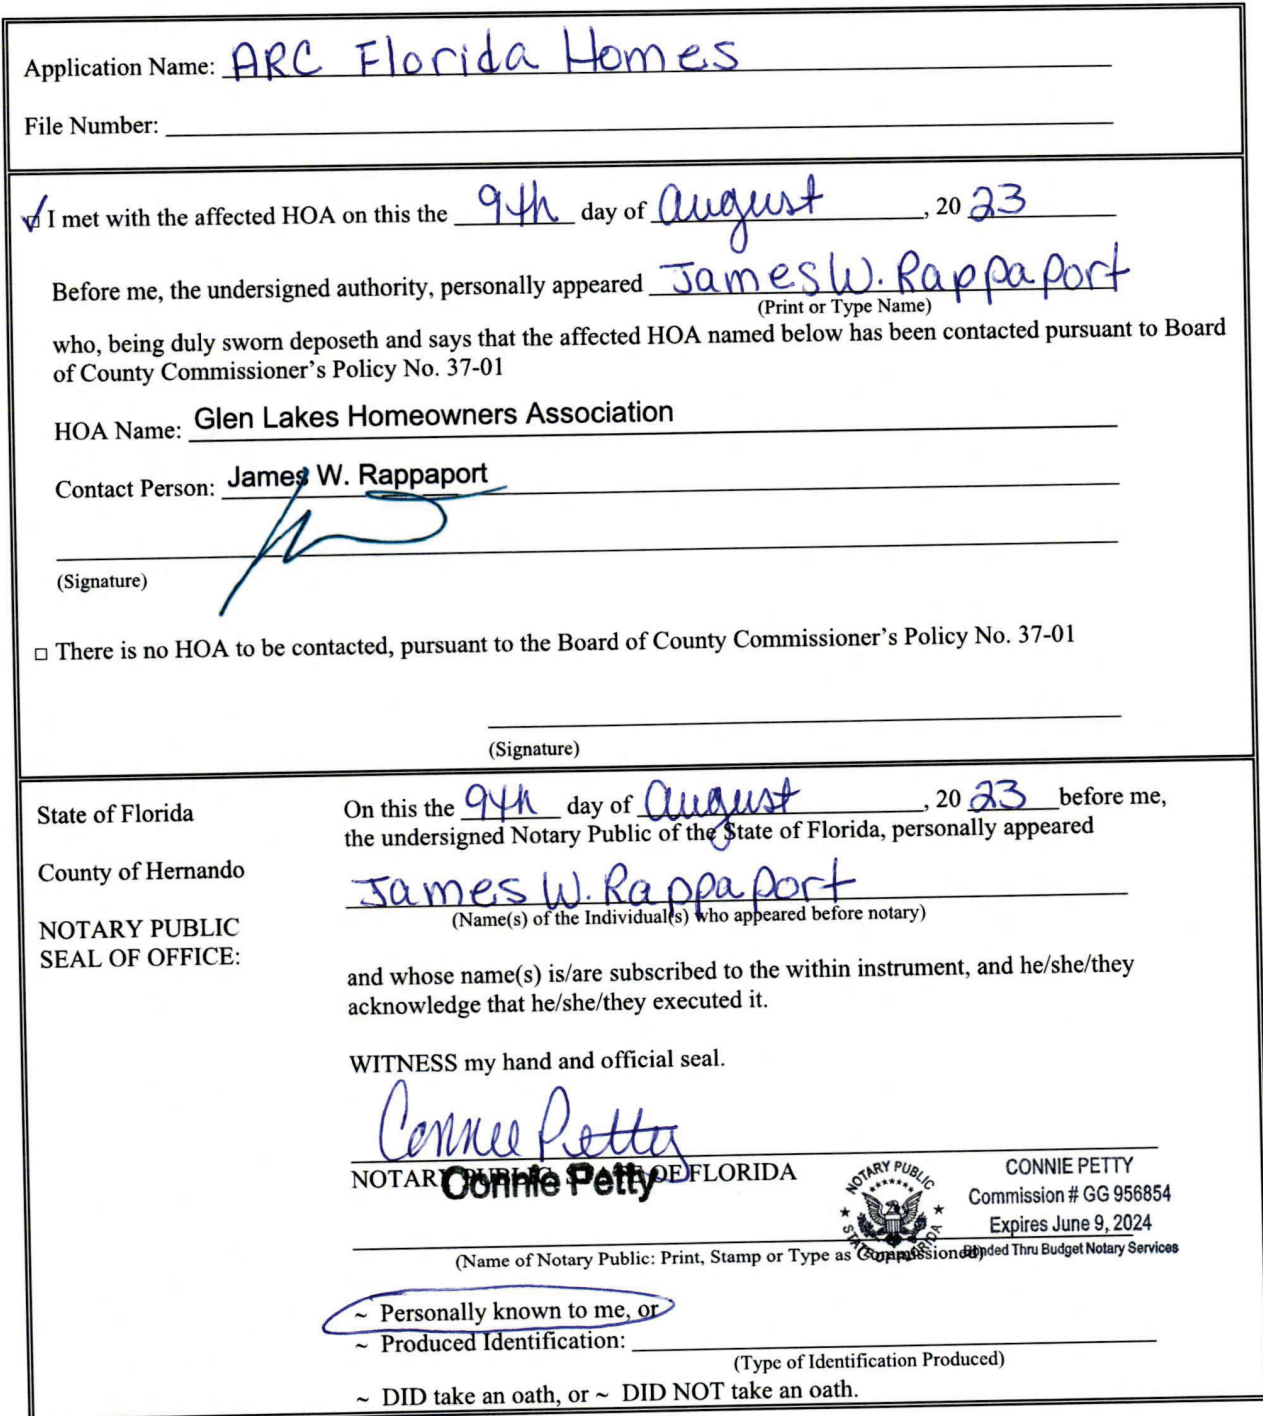 Application Name: ARC Florida Homes
File Number:
I met with the affected HOA on this the 9th day of august, 20 23
Before me, the undersigned authority, personally appeared James W. Rappaport
(Print or Type Name)
who, being duly sworn deposeth and says that the affected HOA named below has been contacted pursuant to Board
of County Commissioner's Policy No. 37-01
HOA Name: Glen Lakes Homeowners Association
Contact Person: James W. Rappaport
(Signature)
□ There is no HOA to be contacted, pursuant to the Board of County Commissioner's Policy No. 37-01
(Signature)
State of Florida
County of Hernando
NOTARY PUBLIC
SEAL OF OFFICE:
On this the 9th day of august, 20 23 before me,
the undersigned Notary Public of the State of Florida, personally appeared
James W. Rappaport
(Name(s) of the Individual(s) who appeared before notary)
and whose name(s) is/are subscribed to the within instrument, and he/she/they
acknowledge that he/she/they executed it.
WITNESS my hand and official seal.
Connie Petty
NOTARY PUBLIC, STATE OF FLORIDA
Connie Petty
NOTARY PUBLIC
STATE OF FLORIDA
CONNIE PETTY
Commission # GG 956854
Expires June 9, 2024
Bonded Thru Budget Notary Services
(Name of Notary Public: Print, Stamp or Type as Commissioned)
~ Personally known to me, or
~ Produced Identification:
(Type of Identification Produced)
~ DID take an oath, or ~ DID NOT take an oath.